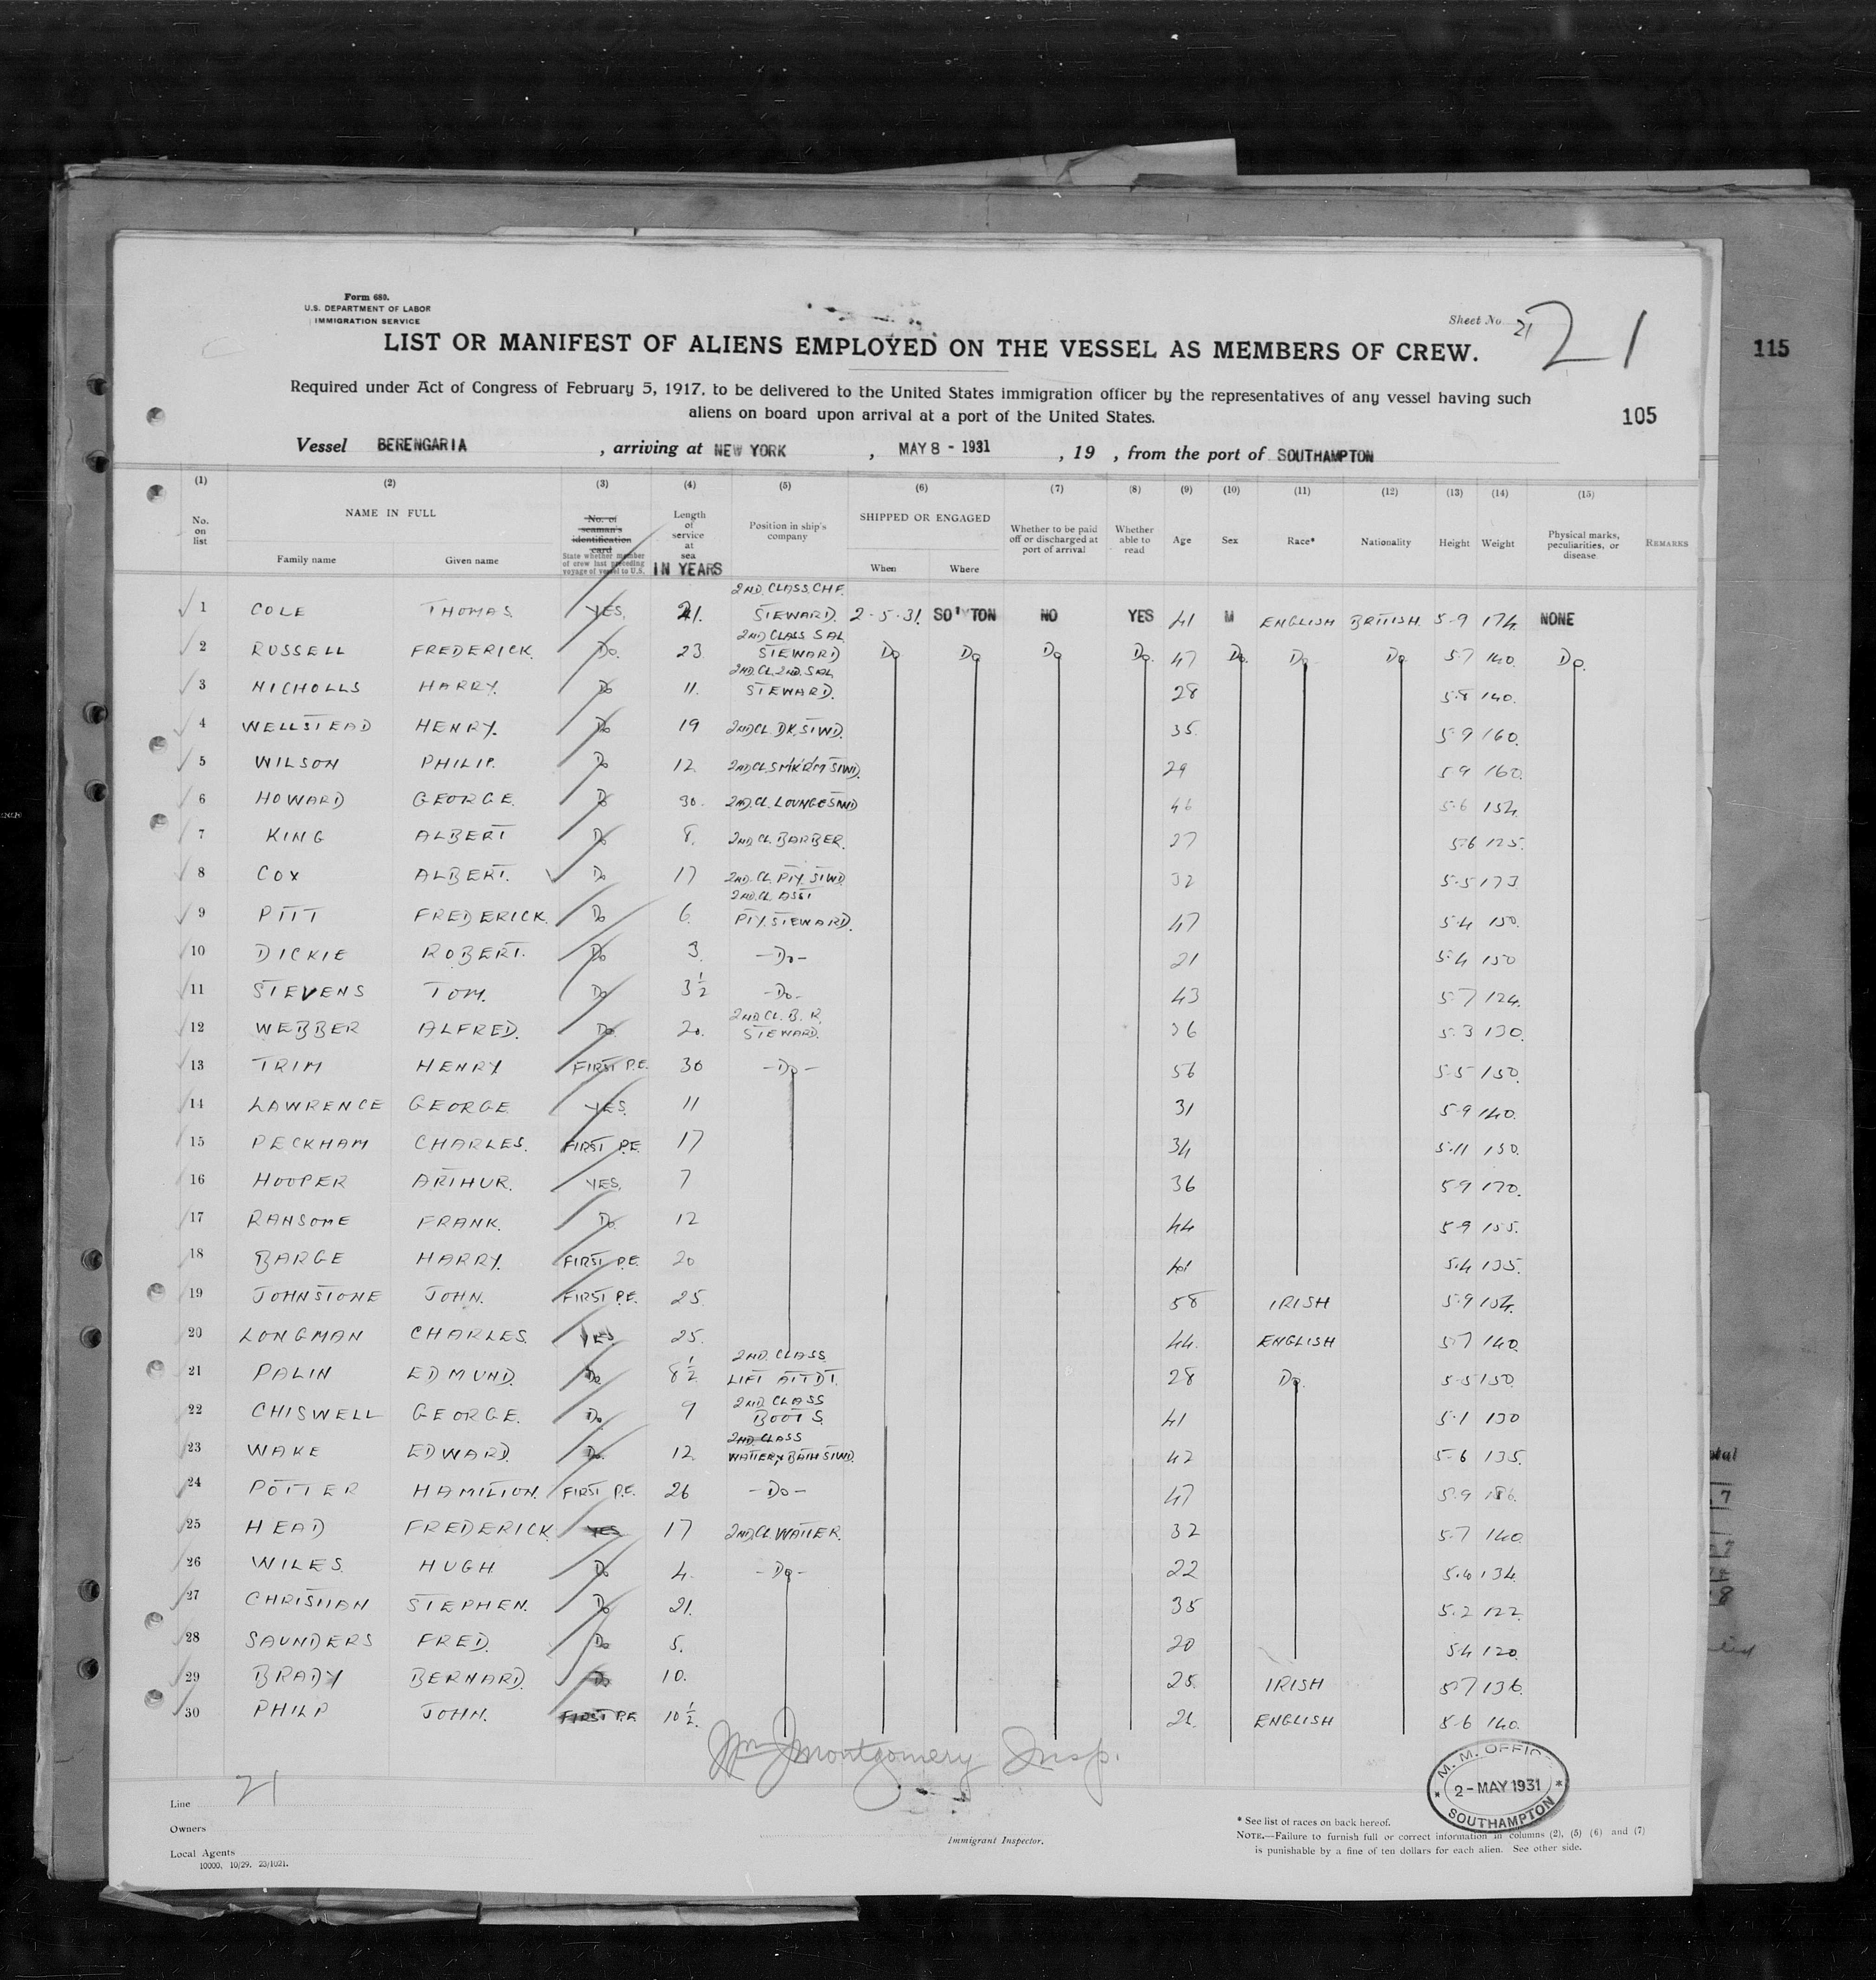 Form 689.
U.S. DEPARTMENT OF LABOR
IMMIGRATION SERVICE
Sheet No. 21 21
LIST OR MANIFEST OF ALIENS EMPLOYED ON THE VESSEL AS MEMBERS OF CREW.
115
Required under Act of Congress of February 5, 1917, to be delivered to the United States immigration officer by the representatives of any vessel having such
aliens on board upon arrival at a port of the United States.
105
Vessel BERENGARIA, arriving at NEW YORK, MAY 8 - 1931, 19 , from the port of SOUTHAMPTON
(1) (2) (3) (4) (5) (6) (7) (8) (9) (10) (11) (12) (13) (14) (15)
No. on list NAME IN FULL Family name Given name No. of seaman's identification card State whether member of crew last preceding voyage of vessel to U.S. Length of service at sea IN YEARS Position in ship's company SHIPPED OR ENGAGED When Where Whether to be paid off or discharged at port of arrival Whether able to read Age Sex Race* Nationality Height Weight Physical marks, peculiarities, or disease REMARKS
1 COLE THOMAS YES. 21. 2ND. CLASS. CHF. STEWARD. 2-5-31. SO'TON NO YES 41 M ENGLISH BRITISH. 5-9 174. NONE
2 RUSSELL FREDERICK. Do. 23 2ND CLASS SAL STEWARD Do Do Do Do. 47 Do. Do Do 5.7 140. Do.
3 NICHOLLS HARRY. Do 11. 2ND. CL. 2ND. SAL STEWARD. 28 5.8 140.
4 WELLSTEAD HENRY. Do 19 2ND CL. DK. STWD. 35. 5.9 160.
5 WILSON PHILIP. Do 12 2ND CL SMK R'M STWD. 29 5.9 160.
6 HOWARD GEORGE. Do 30. 2ND. CL. LOUNGE STWD 46 5.6 154.
7 KING ALBERT Do 8. 2ND CL. BARBER. 27 5.6 125.
8 COX ALBERT. Do 17 2ND. CL. PTY. STWD. 32 5.5 173.
9 PITT FREDERICK. Do 6. 2ND. CL. ASST PTY. STEWARD. 47 5.4 150.
10 DICKIE ROBERT. Do 3. -Do- 21 5.4 150
11 STEVENS TOM. Do 3½ -Do- 43 5.7 124.
12 WEBBER ALFRED. Do. 20. 2ND CL. B. R. STEWARD. 36 5.3 130.
13 TRIM HENRY FIRST P.E. 30 -Do- 56 5.5 150.
14 LAWRENCE GEORGE YES. 11 31 5.9 140.
15 PECKHAM CHARLES. FIRST P.E. 17 34 5.11 150.
16 HOOPER ARTHUR. YES. 7 36 5.9 170.
17 RANSOME FRANK. Do. 12 44 5.9 155.
18 BARGE HARRY. FIRST P.E. 20 5.4 135.
19 JOHNSTONE JOHN. FIRST P.E. 25. 58 IRISH 5.9 154.
20 LONGMAN CHARLES. YES 25. 44. ENGLISH 5.7 140.
21 PALIN EDMUND. Do 8½ 2ND. CLASS LIFT ATTDT. 28 Do. 5.5 150.
22 CHISWELL GEORGE. Do 9 2ND CLASS BOOTS. 41 5.1 130
23 WAKE EDWARD. Do. 12. 2ND. CLASS WAITER & BATH STWD. 42 5-6 135.
24 POTTER HAMILTON. FIRST P.E. 26 -Do- 47 5.9 186.
25 HEAD FREDERICK. YES 17 2ND CL WAITER. 32 5.7 140.
26 WILES. HUGH Do 4. -Do- 22 134.
27 CHRISTIAN STEPHEN. Do 21. 35 5.2 122.
28 SAUNDERS FRED. Do 5. 20 5.4 120.
29 BRADY BERNARD. Do 10. 25. IRISH 5.7 136.
30 PHILP JOHN. FIRST P.E. 10½ ENGLISH 5.6 140.
Wm J Montgomery Insp.
Line 21
Owners
Local Agents
10000. 10/29. 23/1021.
Immigrant Inspector.
M. M. OFFIC
2-MAY 1931
SOUTHAMPTON
* See list of races on back hereof.
NOTE.—Failure to furnish full or correct information in columns (2), (5) (6) and (7)
is punishable by a fine of ten dollars for each alien. See other side.